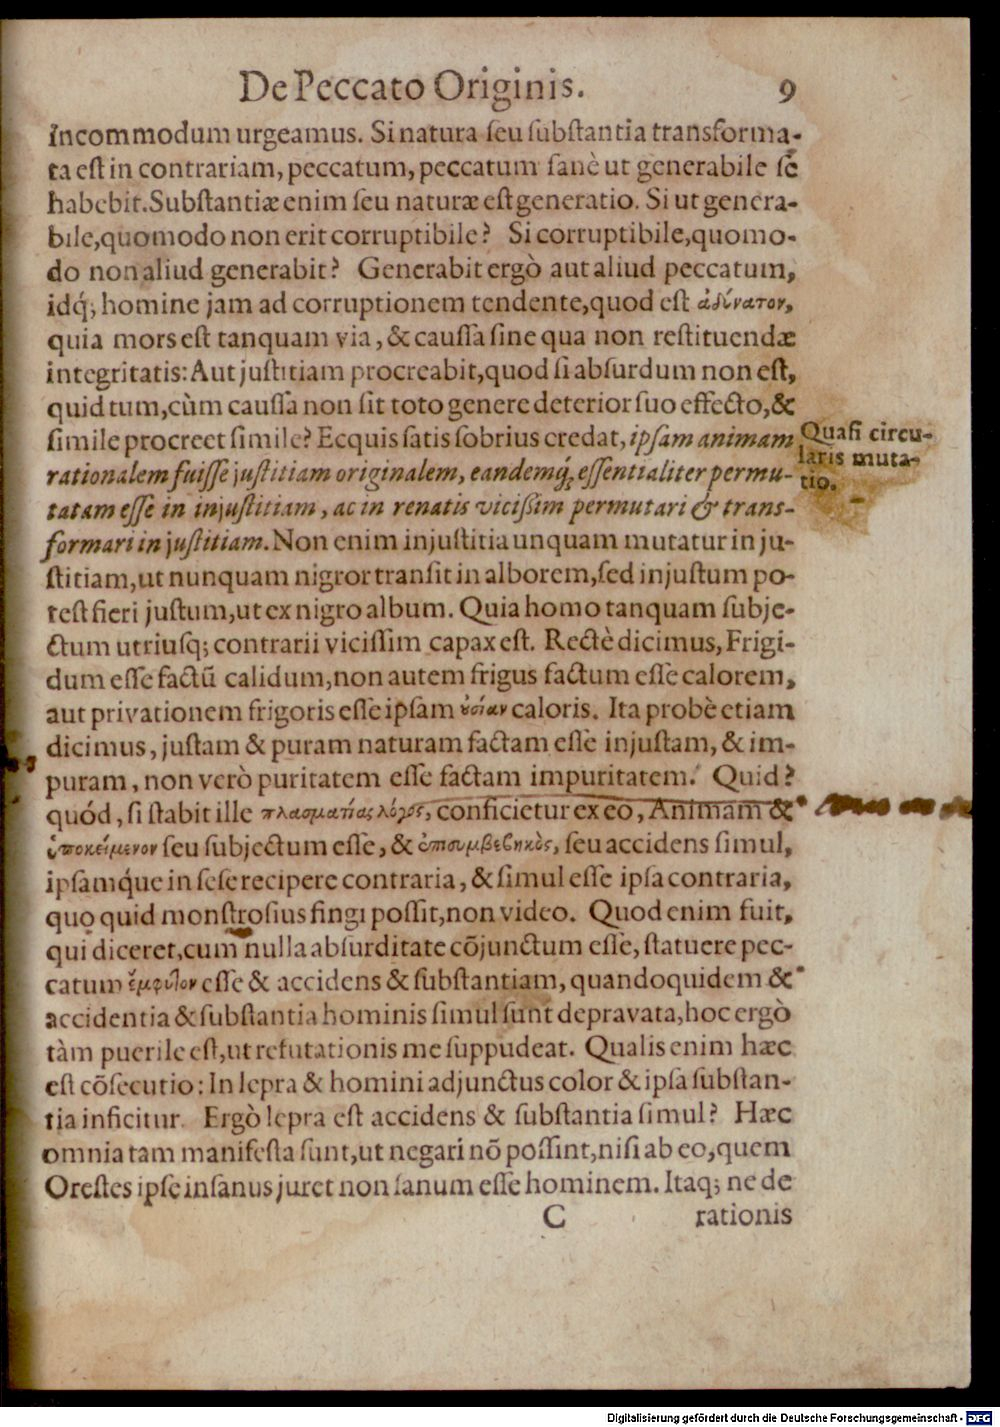 De Peccato Originis. 9
incommodum urgeamus. Si natura ſeu ſubſtantia transforma-
ta eſt in contrariam, peccatum, peccatum ſanè ut generabile ſē
habebit. Subſtantiæ enim ſeu naturæ eſt generatio. Si ut genera-
bile, quomodo non erit corruptibile? Si corruptibile, quomo-
do non aliud generabit? Generabit ergò aut aliud peccatum,
idq́; homine jam ad corruptionem tendente, quod eſt ἀδύνατον,
quia mors eſt tanquam via, & cauſſa ſine qua non reſtituendæ
integritatis: Aut juſtitiam procreabit, quod ſi abſurdum non eſt,
quid tum, cùm cauſſa non ſit toto genere deterior ſuo effecto, &
ſimile procreet ſimile? Ecquis ſatis ſobrius credat, ipſam animam
rationalem fuiſſe juſtitiam originalem, eandemq́; eſſentialiter permu-
tatam eſſe in injuſtitiam, ac in renatis viciſſim permutari & trans-
formari in juſtitiam. Non enim injuſtitia unquam mutatur in ju-
ſtitiam, ut nunquam nigror tranſit in alborem, ſed injuſtum po-
teſt fieri juſtum, ut ex nigro album. Quia homo tanquam ſubje-
ctum utriuſq; contrarii viciſſim capax eſt. Rectè dicimus, Frigi-
dum eſſe factū calidum, non autem frigus factum eſſe calorem,
aut privationem frigoris eſſe ipſam ὐσίαν caloris. Ita probè etiam
dicimus, juſtam & puram naturam factam eſſe injuſtam, & im-
puram, non verò puritatem eſſe factam impuritatem. Quid?
quód, ſi ſtabit ille πλασματίας λόγος, conficietur ex eo, Animam &
ὑποκείμενον ſeu ſubjectum eſſe, & ἐπισυμβεβηκὸς, ſeu accidens ſimul,
ipſamq́ue in ſeſe recipere contraria, & ſimul eſſe ipſa contraria,
quo quid monſtroſius fingi poſſit, non video. Quod enim fuit,
qui diceret, cum nulla abſurditate cōjunctum eſſe, ſtatuere pec-
catum ἔμφυτον eſſe & accidens & ſubſtantiam, quandoquidem &
accidentia & ſubſtantia hominis ſimul ſunt depravata, hoc ergò
tàm puerile eſt, ut refutationis me ſuppudeat. Qualis enim hæc
eſt cōſecutio: In lepra & homini adjunctus color & ipſa ſubſtan-
tia inficitur. Ergò lepra eſt accidens & ſubſtantia ſimul? Hæc
omnia tam manifeſta ſunt, ut negari nō poſſint, niſi ab eo, quem
Oreſtes ipſe inſanus juret non ſanum eſſe hominem. Itaq; ne de
C rationis
Quaſi circu-
laris muta-
tio.
Digitalisierung gefördert durch die Deutsche Forschungsgemeinschaft - DFG